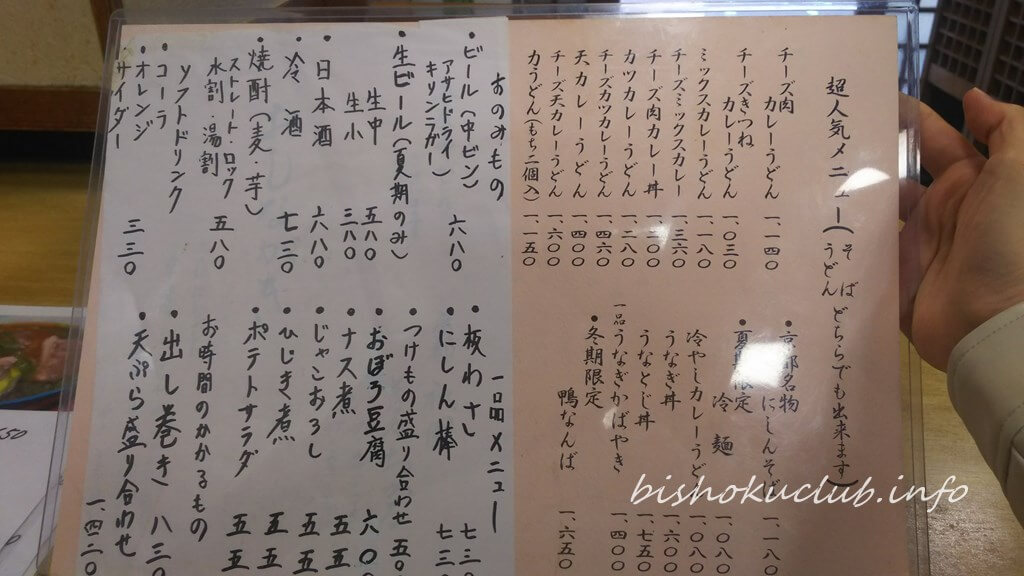 超人気メニュー(そばうどんどちらでも出来ます)
チーズ肉
カレーうどん 一、一四〇
チーズきつね
カレーうどん 一、〇三〇
ミックスカレーうどん 一、一八〇
チーズミックスカレー 一、三六〇
チーズ肉カレー丼 一、一〇〇
カツカレーうどん 一、二八〇
チーズカツカレーうどん 一、四六〇
天カレーうどん 一、四〇〇
チーズ天カレーうどん 一、六〇〇
力うどん(もち二個入) 一、一五〇
●京都名物
にしんそば 一、一八〇
●夏期限定
冷麺 一、〇八〇
冷やしカレーうどん 一、〇八〇
うなぎ丼 一、六〇〇
うなとじ丼 一、七五〇
一品うなぎかばやき 一、四〇〇
●冬期限定
鴨なんば 一、六五〇
おのみもの
●ビール(中ビン) 六八〇
アサヒドライ
キリンラガー
●生ビール(夏期のみ)
生中 五八〇
生小 三八〇
●日本酒 六八〇
●冷酒 七三〇
●焼酎(麦・芋)
ストレート・ロック
水割・湯割 五八〇
ソフトドリンク
●コーラ
●オレンジ
●サイダー
三三〇
一品メニュー
●板わさ 七三
●にしん棒 七三
●つけもの盛り合わせ 五
●おぼろ豆腐 六〇
●ナス煮 五五
●じゃこおろし 五五
●ひじき煮 五五
●ポテトサラダ 五五
お時間のかかるもの
●出し巻き 八三〇
●天ぷら盛り合わせ 一、四二〇
bishokuclub.info